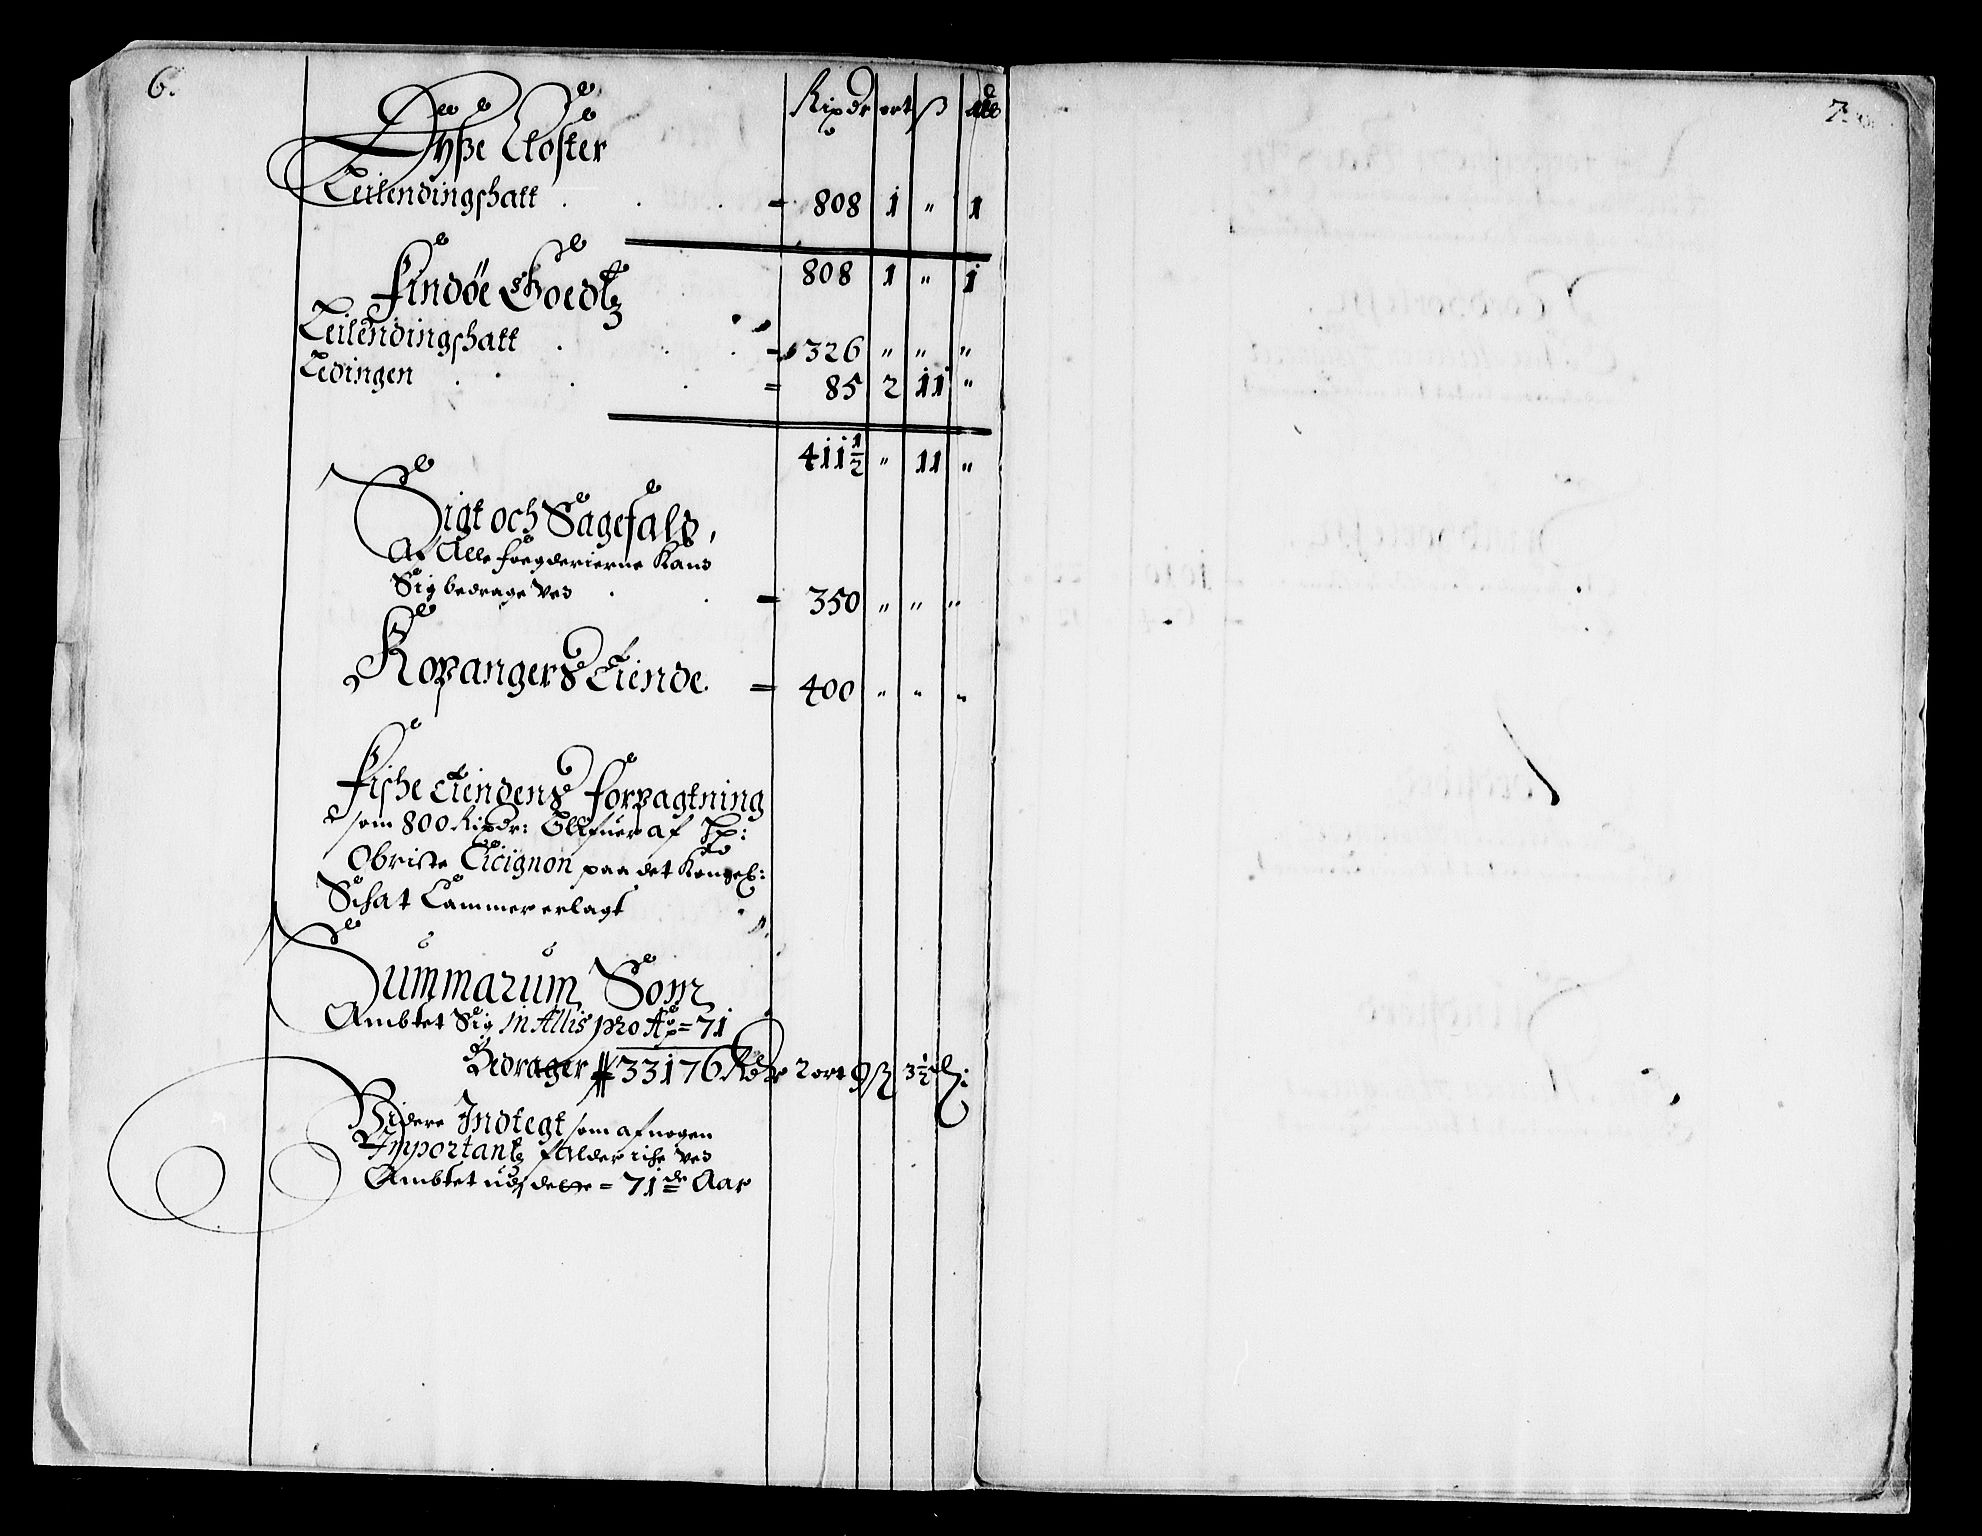 6.
Rixdr ort ß
Lyße Closter
Leilendingshatt . . . = 808 1 " 1
808 1 " 1
Findøe Goedtz
Leilendingshatt . . . = 326 " " "
Ledingen . . . = 85 2 11 "
411½ " 11 "
Sigt och Sagefald,
Af Alle foegderierne Kand
Sig bedrage Ved . . = 350 " " "
Kopangers Tiende. = 400 " " "
Fiske Tiendens Forpagtning
som 800 Rixdr: blifuer af Hr:
Obriste Cicignon paa det Kongel:
Schat Cammer erlagt
Summarum Som
Ambtet Sig in Allis pro Ao = 71
Bedrager 33176 Rdr 2 ort 9 ß 3½
Videre Indtegt som af nogen
Importantz falder iche Ved
Ambtet udj dette = 71de Aar
7.